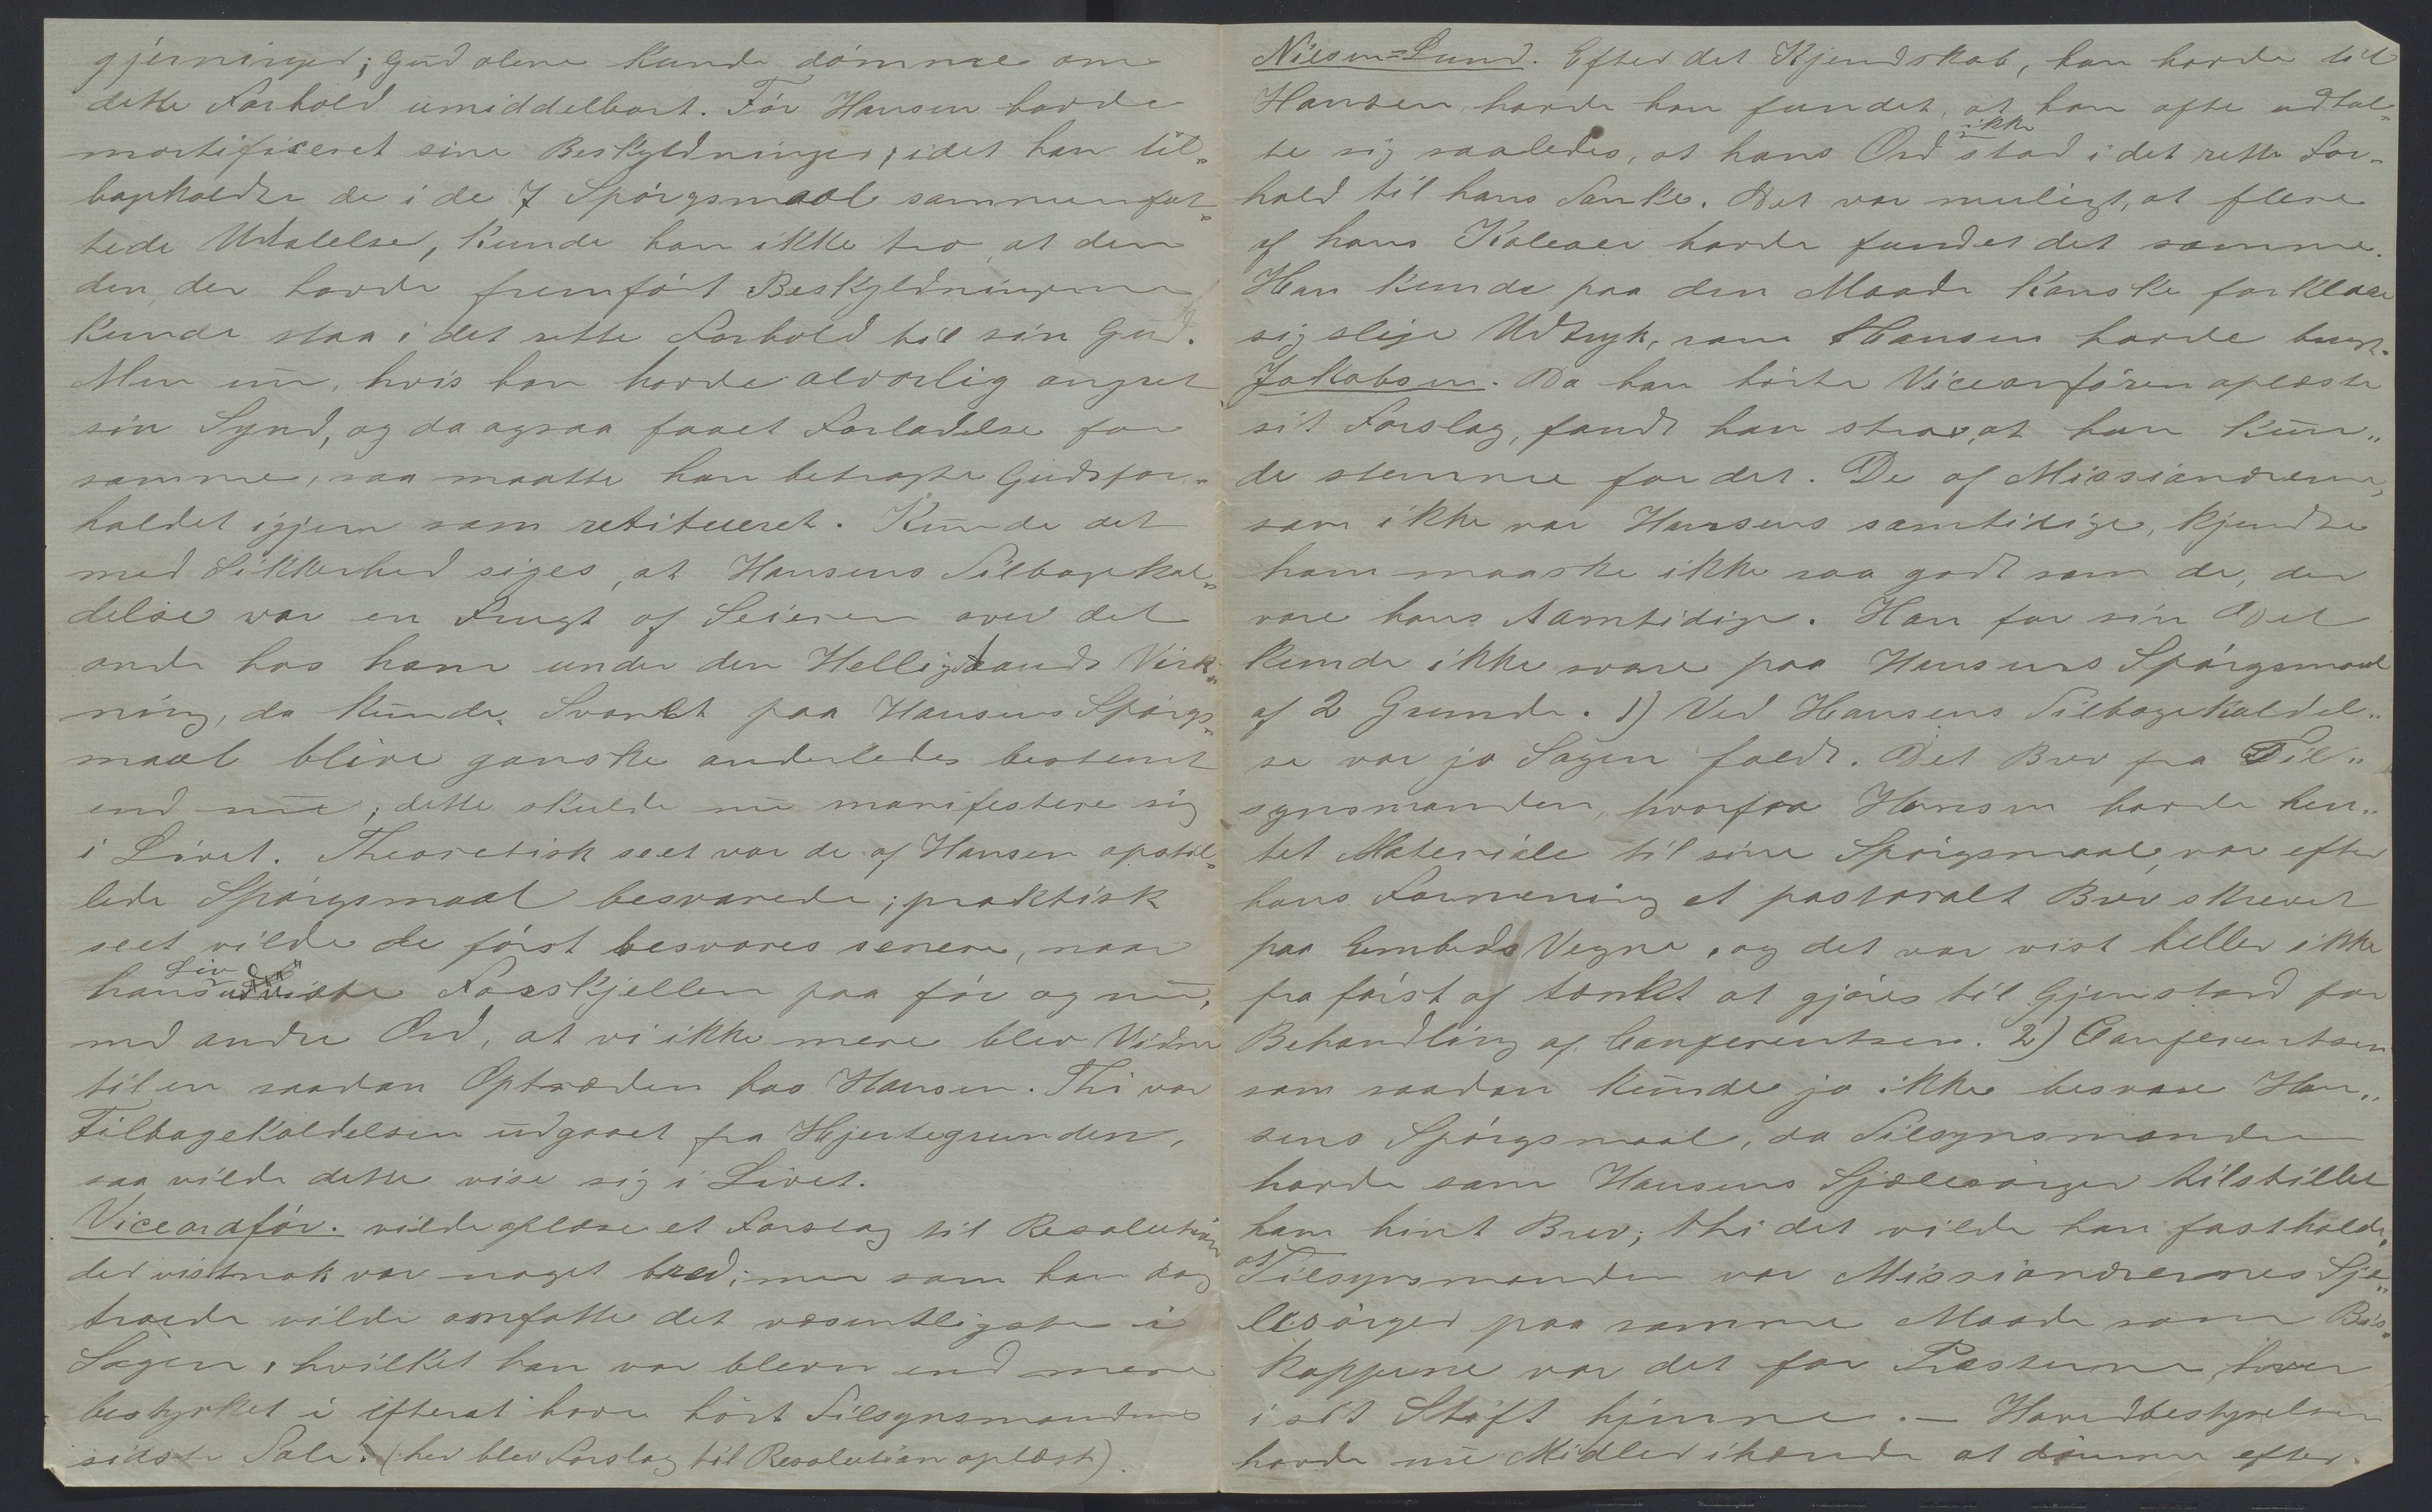 gjerninger; Gud alene kunde dömme om
dette Forhold umiddelbart. Før Hansen havde
mortificeret sine Beskyldninger, idet han til-
bagekaldte de i de 7 Spörgsmaal sammenfat-
tede Udtalelser, kunde han ikke tro, at den
den, der havde fremfört Beskyldningerne
kunde staa i det rette Forhold til sin Gud.
Men nu, hvis han havde alvorlig angret
sin Synd, og da ogsaa faaet Forladelse for
samme, saa maatte han betragte Gudsfor-
holdet igjen som retitueret. Kunde det
med Sikkerhed siges, at Hansens Tilbagekal-
delse var en Frugt af Seieren over det
onde hos ham under den Helligaands Virk-
ning, da kunde Svaret paa Hansens Spörgs-
maal blive ganske anderledes bestemt
end nu; dette skulde nu manifestere sig
i Livet. Theoretisk seet var de af Hansen opstil-
lede Spörgsmaal besvarede; praktisk
seet vilde de först besvares senere, naar
hans Liv udviste Forskjellen paa för og nu,
med andre Ord, at vi ikke mere blev Vidne
til en saadan Optræden hos Hansen. Thi var
Tilbagekaldelsen udgaaet fra Hjertegrunden,
saa vilde dette vise sig i Livet.
Viceordför. vilde oplæse et Forslag til Resolution
der vistnok var noget bred; men som han dog
troede vilde omfatte det væsentligste i
Sagen, hvilket han var bleven end mere
bestyrket i efterat have hört Tilsynsmandens
sidste Tale. (her blev Forslag til Resolution oplæst).
Nilsen=Lund. Efter det Kjendskab, han havde til
Hansen, havde han fundet, at han ofte udtal-
te sig saaledes, at hans Ord ikke stod i det rette For-
hold til hans Tanke. Det var muligt, at flere
af hans Koleger havde fundet det samme.
Han kunde paa den Maade kanske forklare
sig slige Udtryk, som Hansen havde brugt.
Jakobsen. Da han hörte Viceordfören oplæste
sit Forslag, fandt han strax, at han kun-
de stemme for det. De af Missionærerne,
som ikke var Hansens samtidige, kjendte
ham maaske ikke saa godt som de, der
vare hans Samtidige. Han for sin Del
kunde ikke svare paa Hansens Spörgsmaal
af 2 Grunde. 1) Ved Hansens Tilbagekaldel-
se var jo Sagen faldt. Det Brev fra Til-
synsmanden, hvorfra Hansen havde hen-
tet Materiale til sine Spörgsmaal, var efter
hans Formening et pastoralt Brev, skrevet
paa Embeds Vegne, og det var vist heller ikke
fra först af tænkt at gjöres til Gjenstand for
Behandling af Conferentsen. 2) Conferentsen
som saadan kunde jo ikke besvare Han-
sens Spörgsmaal, da Tilsynsmanden
havde som Hansens Sjælesörger tilstillet
ham hint Brev; thi det vilde han fastholde,
at Tilsynsmanden var Missionærernes Sjæ-
lesörger paa samme Maade som Bis-
kopperne var det for Præsterne hver
i sit Stift hjemme. — Hovedbestyrelsen
havde nu Midler ihænde at dömme efter.